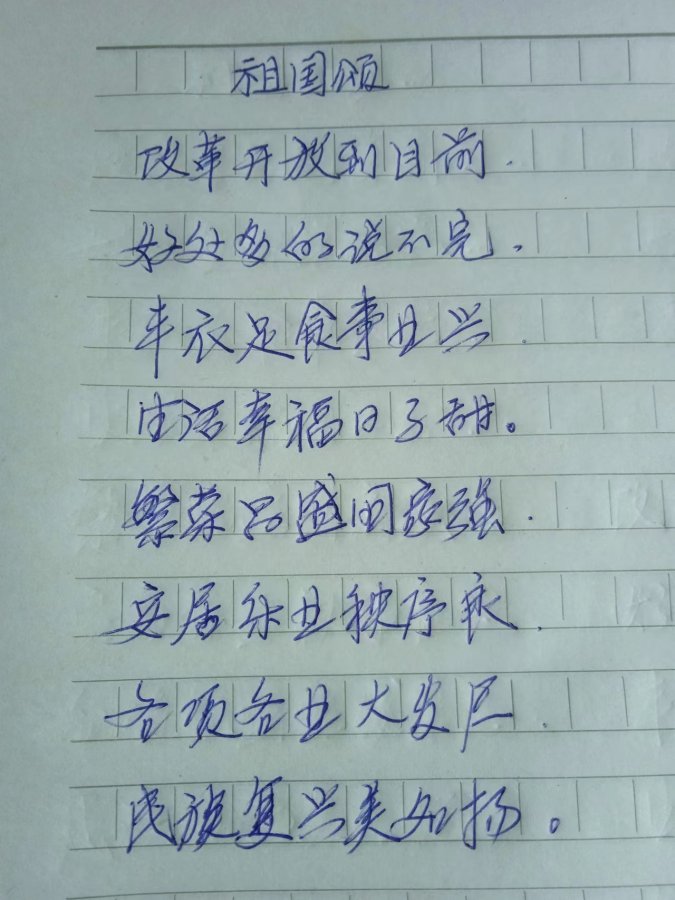 祖国颂
改革开放到目前.
好处多的说不完.
丰衣足食事业兴.
生活幸福日子甜。
繁荣昌盛国家强.
安居乐业秩序良.
各项各业大发展.
民族复兴美如扬。